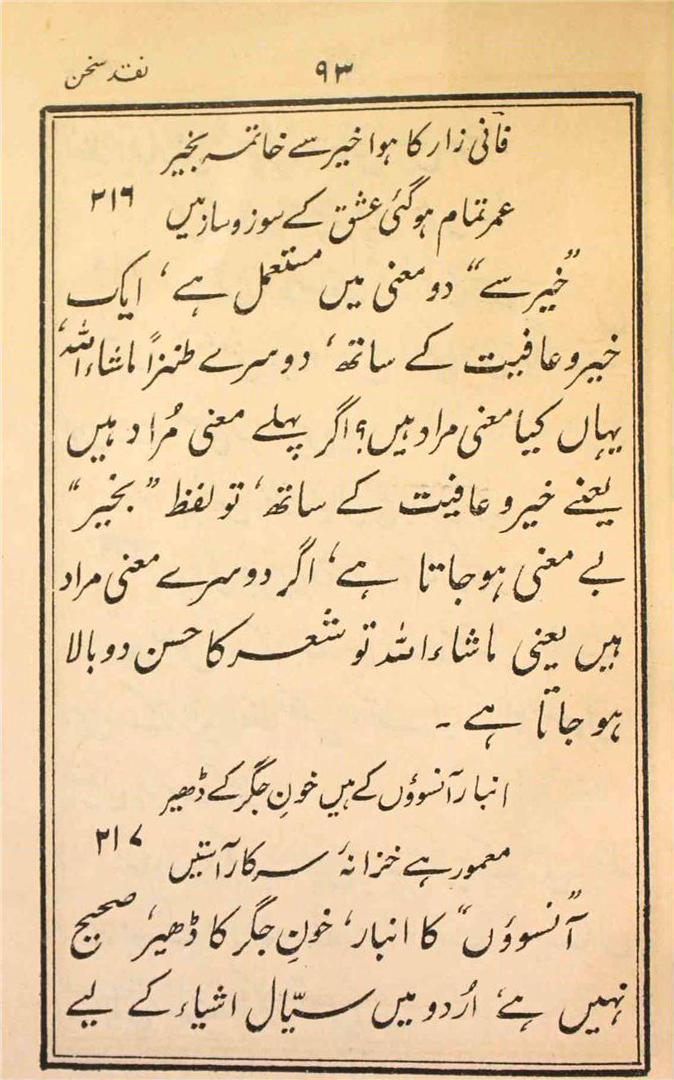 ۹۳ نقد سخن
فانی زار کا ہوا خیر سے خاتمہ بخیر
عمر تمام ہوگئی عشق کے سوز و ساز میں ۲۱۶
”خیر سے“ دو معنی میں مستعمل ہے، ایک
خیر و عافیت کے ساتھ، دوسرے طنزاً ماشاء اللہ،
یہاں کیا معنی مراد ہیں؟ اگر پہلے معنی مُراد ہیں
یعنے خیر و عافیت کے ساتھ، تو لفظ ”بخیر“
بے معنی ہو جاتا ہے، اگر دوسرے معنی مراد
ہیں یعنی ماشاء اللہ تو شعر کا حسن دوبالا
ہو جاتا ہے ۔
انبار آنسوؤں کے ہیں خونِ جگر کے ڈھیر
معمور ہے خزانۂ سرکار آستیں ۲۱۷
”آنسوؤں“ کا انبار، خونِ جگر کا ڈھیر، صحیح
نہیں ہے، اُردو میں سیّال اشیاء کے لیے